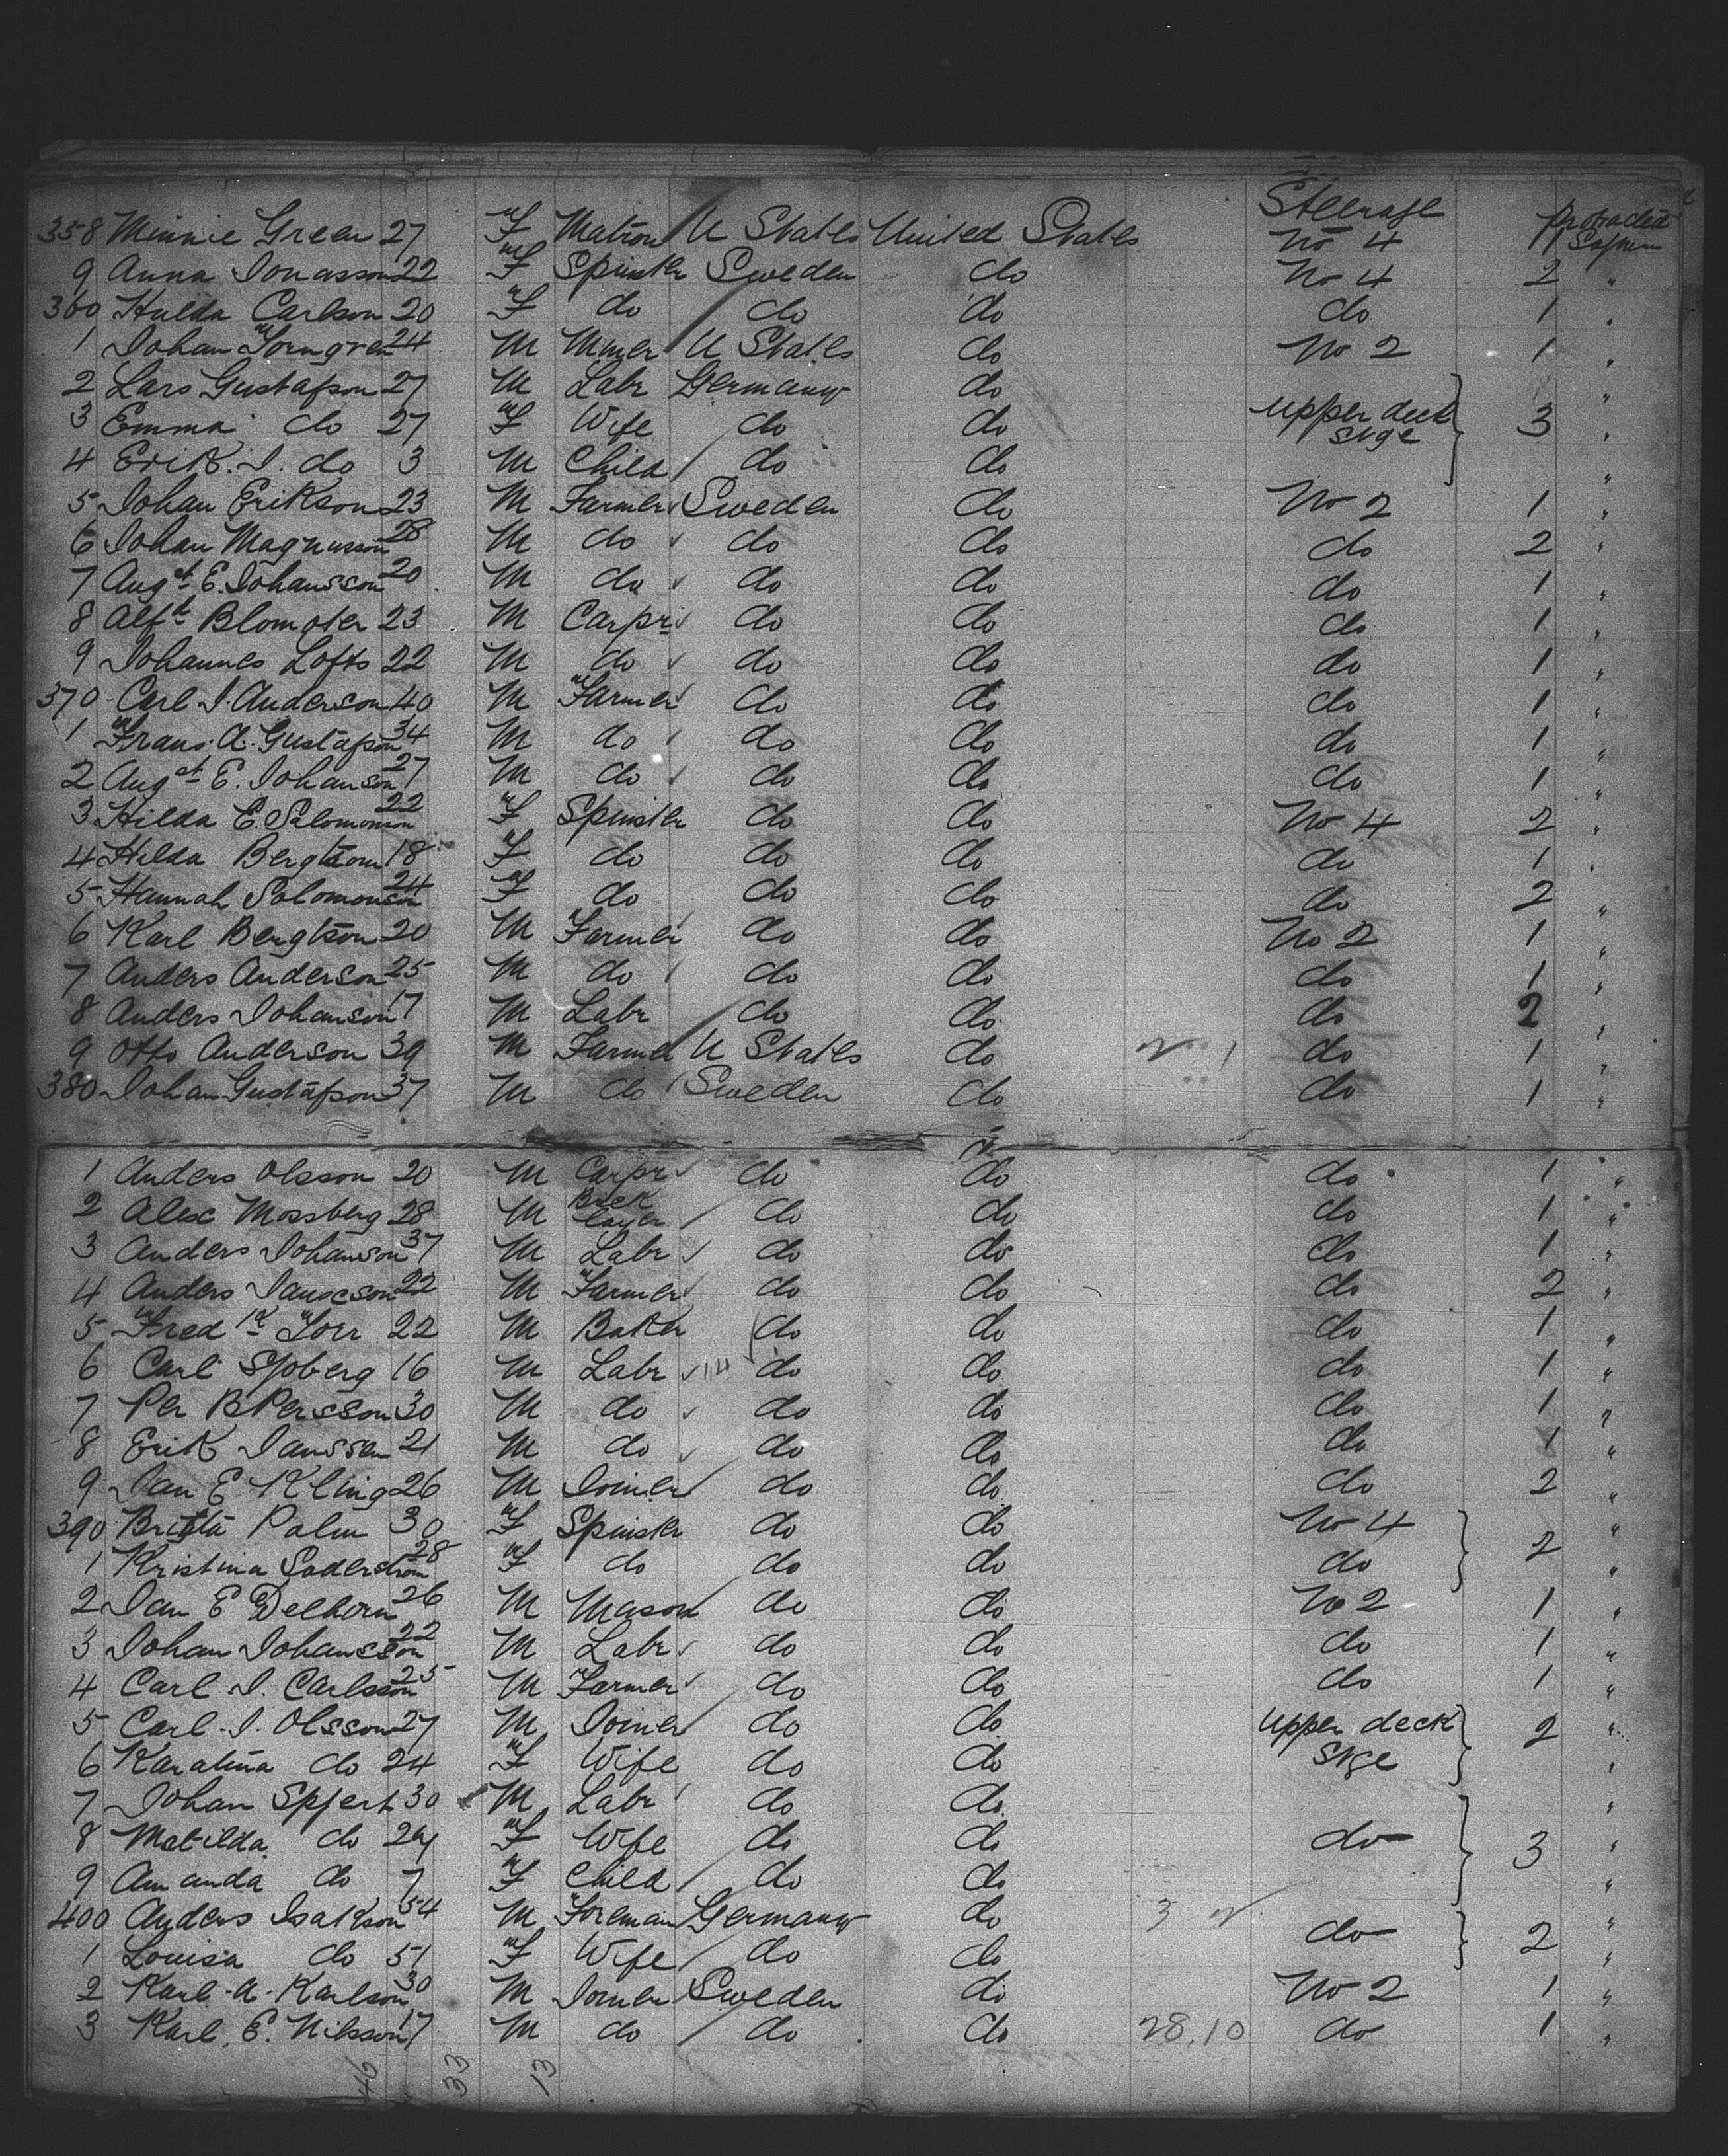 Steerage Protracted
358 Minnie Green 27 F Matron U States United States No 4 1 Sojourn
9 Anna Jonasson 22 F Spinster Sweden do No 4 2 "
360 Hulda Carlson 20 F do do do do 1 "
1 Johan Forngren 24 M Miner U States do No 2 1 "
2 Lars Gustafson 27 M Labr Germany do "
3 Emma do 27 F Wife do do upper deck stge 3 "
4 Erik. J. do 3 M Child do do "
5 Johan Erikson 23 M Farmer Sweden do No 2 1 "
6 Johan Magnusson 28 M do do do do 2 "
7 Augst E. Johansson 20 M do do do do 1 "
8 Alfd Blomqter 23 M Carpr do do do 1 "
9 Johannes Lofts 22 M do do do do 1 "
370 Carl J. Anderson 40 M Farmer do do do 1 "
1 Frans. A. Gustafson 34 M do do do do 1 "
2 Augst E. Johanson 27 M do do do do 1 "
3 Hilda E. Salomonson 22 F Spinster do do No 4 2 "
4 Hilda Bergtson 18 F do do do do 1 "
5 Hannah Solomonson 24 F do do do do 2 "
6 Karl Bergtson 20 M Farmer do do No 2 1 "
7 Anders Anderson 25 M do do do do 1 "
8 Anders Johanson 17 M Labr do do do 2 "
9 Otto Anderson 39 M Farmer U States do do 1 "
380 Johan Gustafson 37 M do Sweden do do 1 "
1 Anders Olsson 20 M Carpr do do do 1 "
2 Alex Mossberg 28 M Brick layer do do do 1 "
3 Anders Johanson 37 M Labr do do do 1 "
4 Anders Jansson 22 M Farmer do do do 2 "
5 Fredrk Forr 22 M Baker do do do 1 "
6 Carl Sjoberg 16 M Labr do do do 1 "
7 Per B Persson 30 M do do do do 1 "
8 Erik Janssen 21 M do do do do 1 "
9 Jan E Kling 26 M Joiner do do do 2 "
390 Britta Palm 30 F Spinster do do No 4 2 "
1 Kristina Soderstrom 28 F do do do do "
2 Jan E Delhorn 26 M Mason do do No 2 1 "
3 Johan Johansson 22 M Labr do do do 1 "
4 Carl J. Carlsson 25 M Farmer do do do 1 "
5 Carl. J. Olsson 27 M Joiner do do upper deck 2 "
6 Karatina do 24 F Wife do do stge "
7 Johan Spfert 30 M Labr do do "
8 Matilda do 29 F Wife do do do 3 "
9 Amanda do 7 F Child do do "
400 Anders Isakson 54 M Foreman Germany do 3 do 2 "
1 Louisa do 51 F Wife do do "
2 Karl. A. Karlson 30 M Joiner Sweden do No 2 1 "
3 Karl. E. Nilsson 17 M do do do 28.10 do 1 "
46 33 13